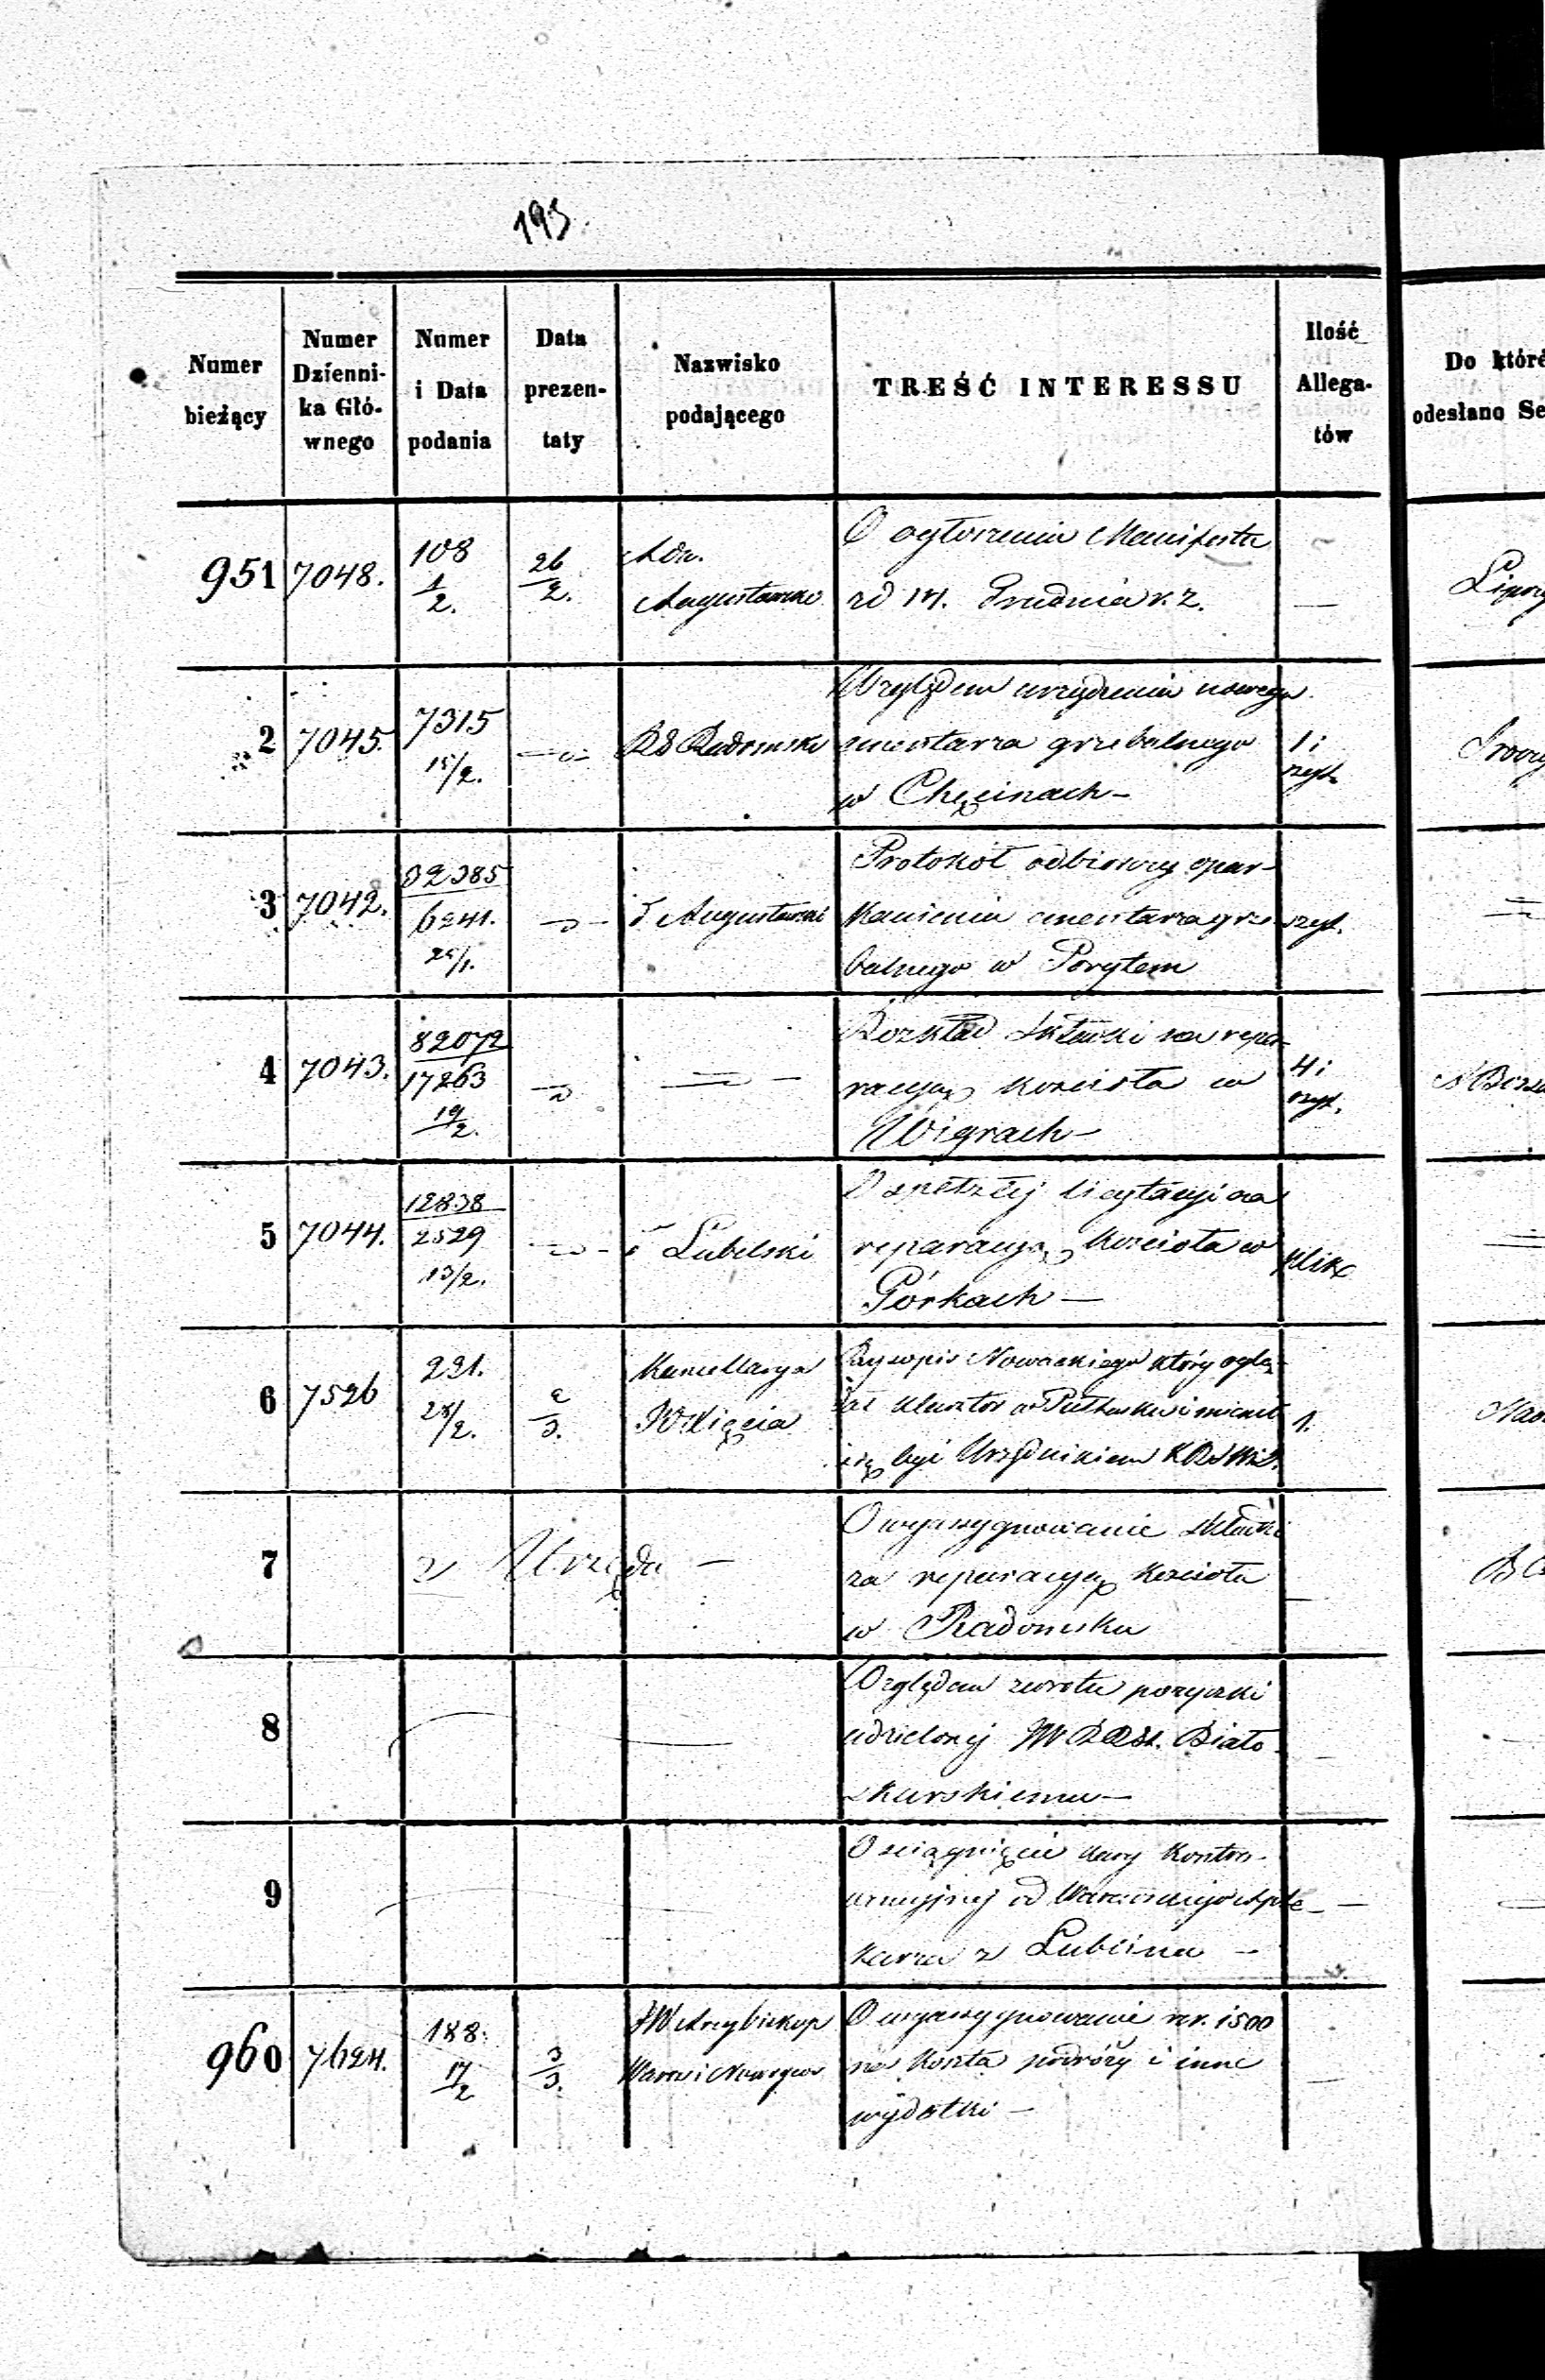 193.
Numer
bieżący
Numer
Dzienni-
ka Głó-
wnego
Numer
i Data
podania
Data
prezen-
taty
Nazwisko
podającego
TREŚĆ INTERESSU
Ilość
Allega-
tów
Do któré
odesłano Se
951 7048. 108 1/2. 26/2.
Augustowski
O ogłoszeniu Manifestu
zd 14. Grudnia r. z.
—
2 7045. 7315 15/2.
Rd Radomski
Względem urządzenia nowego
smentarza grzebalnego
w Chęcinach —
1 i
szyt.
3 7042. 32385
6241.
25/1.
Augustowski
Protokół odbiorczy opar-
kanienia cmentarza grze-
balnego w Porytem
szyt.
4 7043. 82072
17263
19/2.
Rozkład składki na repa-
racyą kościoła w
Wigrach —
4 i
szyt.
5 7044. 12838
2529
13/2.
Lubelski
O spełzłej licytacyi na
reparacyą kościoła w
Górkach —
plika
6 7526 221.
28/2.
2/3.
Kancellarya
JO Xięcia
Rysopis Nowackiego który oglą-
dał klasztor w Pułtusku i mienił
się być Urzędnikiem
1.
7 z Urzędu —
O wyasygnowanie składki
na reparacyą kościoła
w Radomsku
—
8
Względem zwrotu pożyczki
udzielonej JW Biało
skurskiemu —
9
O sciągnięcie kary kontra-
wencyjnej od Apte-
karza z Lublina —
960 7624. 188.
17/2
3/3.
JW Arcybiskup
Warsz i Nowogeor
O wyasygnowanie rsr. 1500
na koszta podróży i inne
wydatki —
—